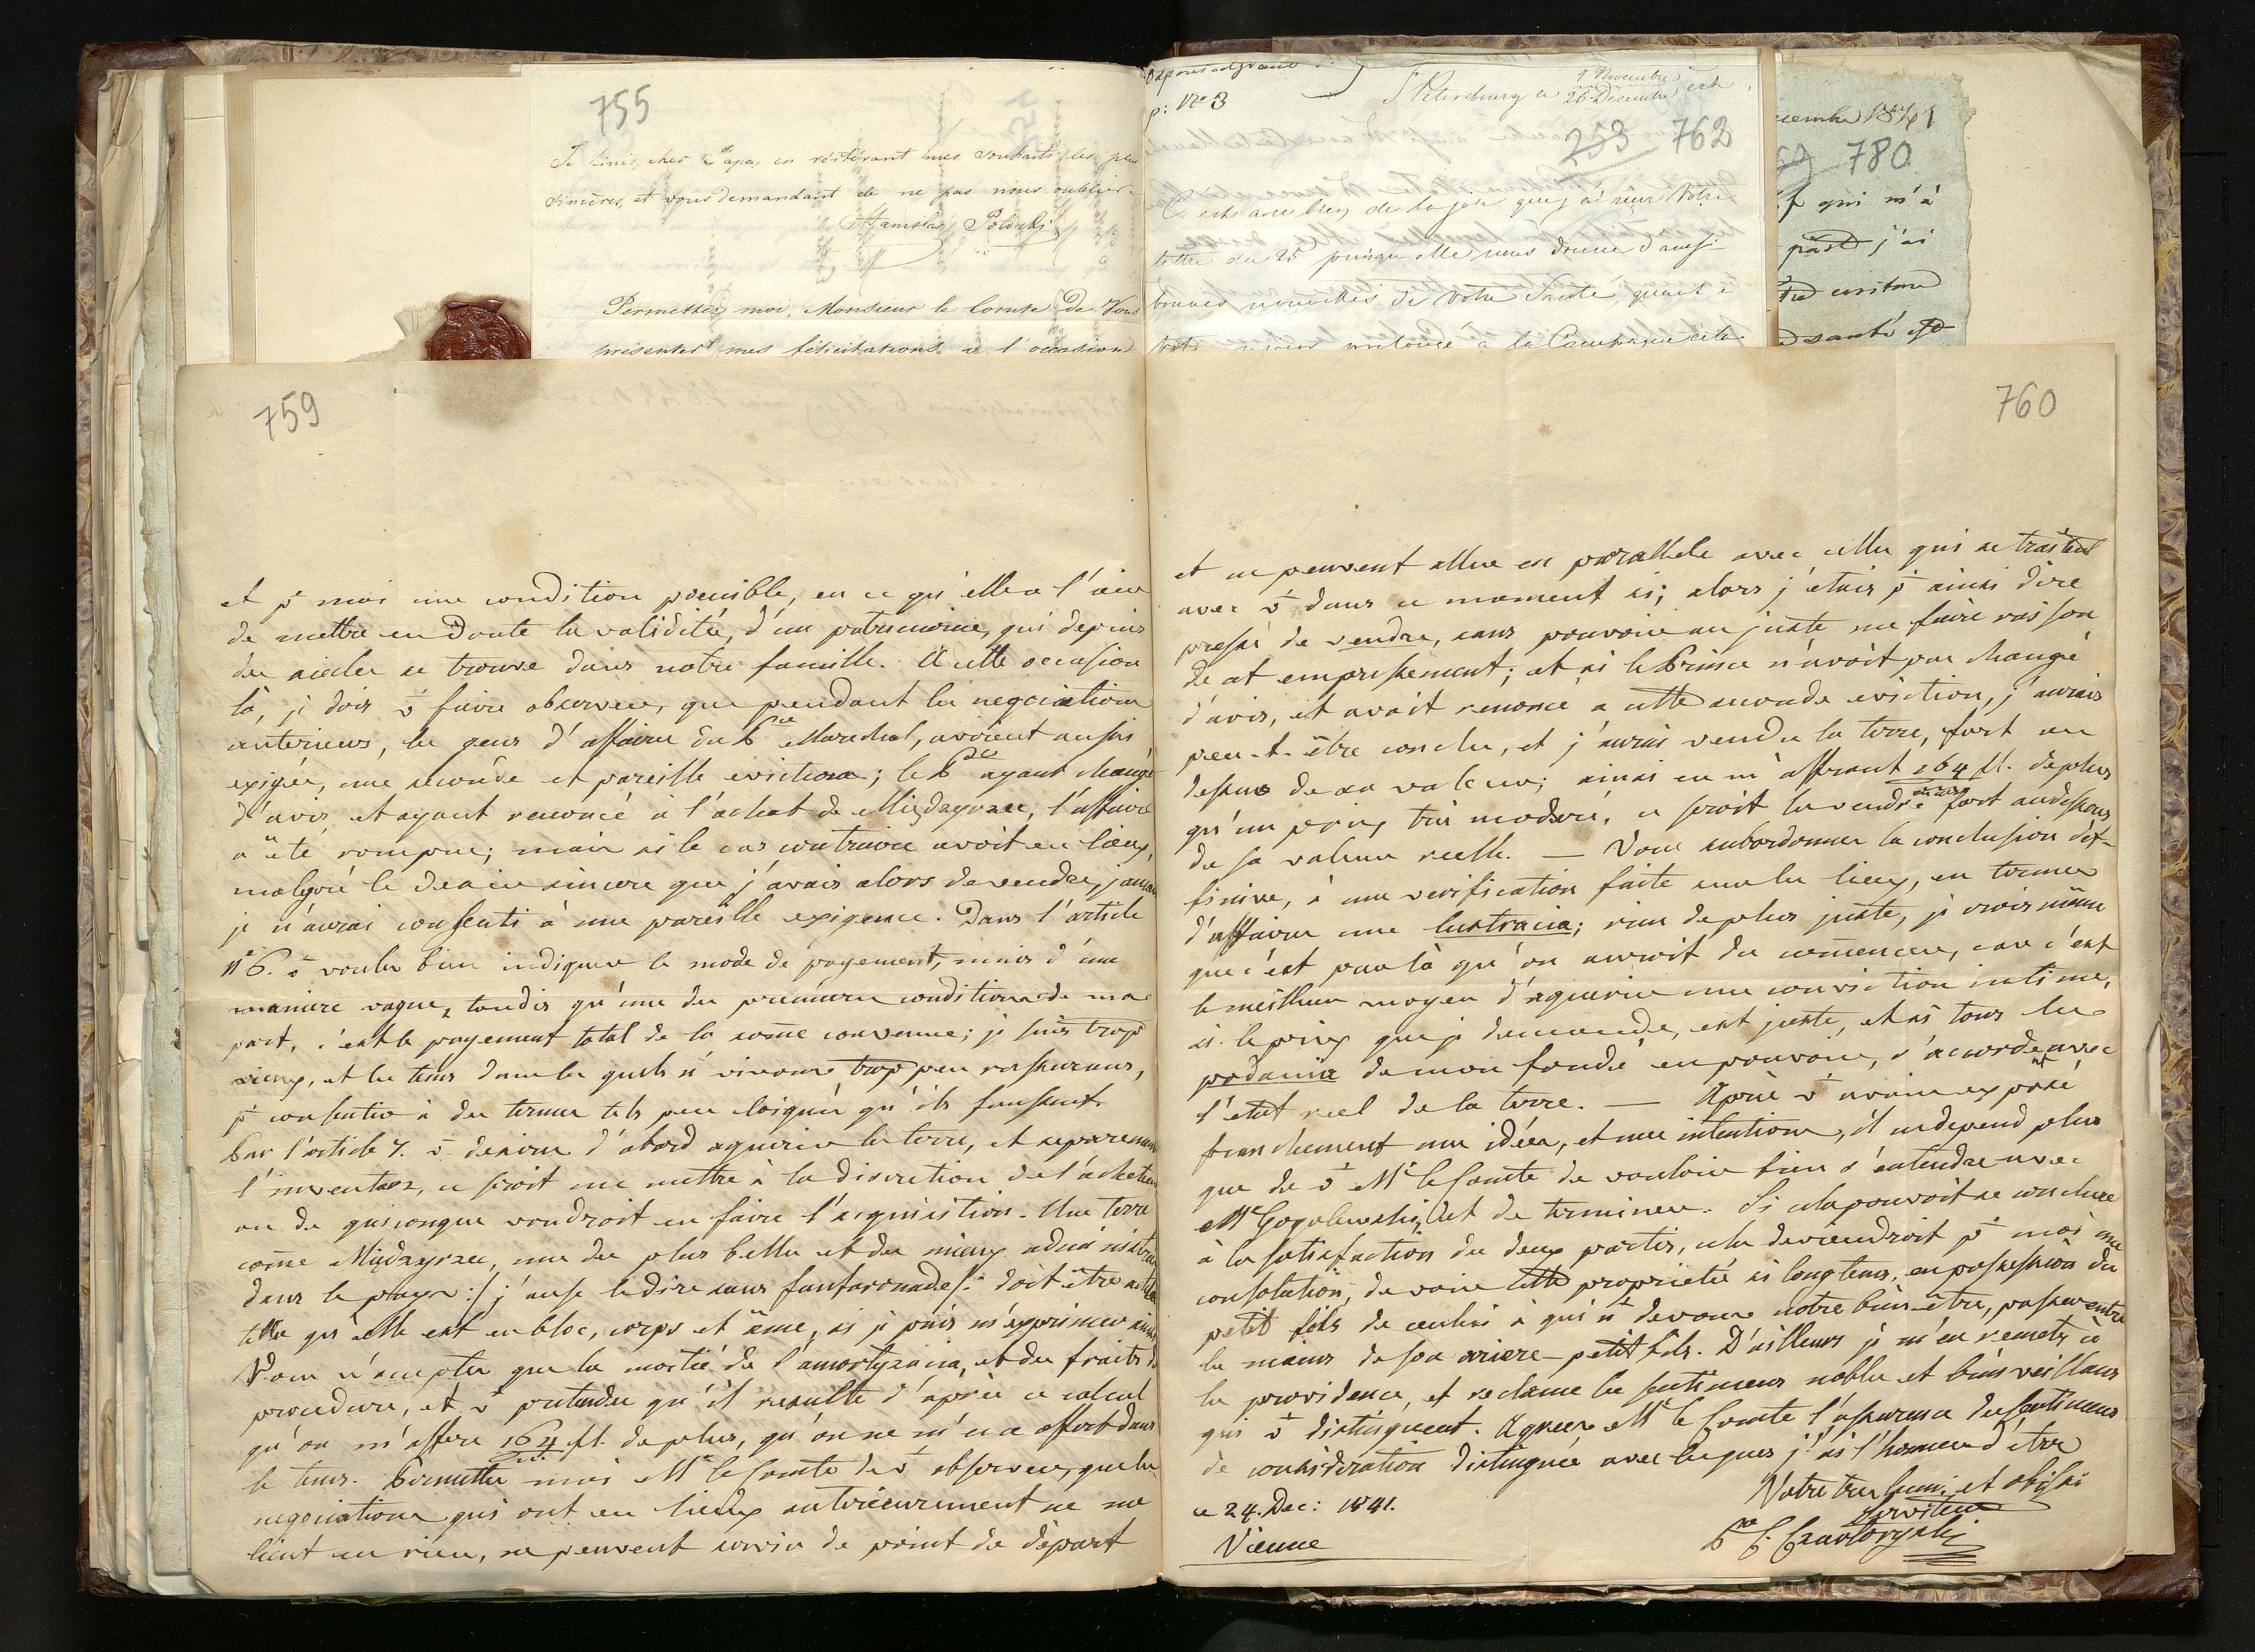 755
Je finis, cher Papa, en réitérant mes souhaits les plus
sincères, et vous demandant de ne pas nous oublier.
Stanislas Potocki
Permettez moi, Monsieur le Comte de Vous
présenter mes félicitations à l'occasion
p: Nro 3
St Petersbourg ce 26 Decembre
1 Novembre
253 762
C'est avec bien de la joie que j'ai reçu Votre
lettre du 25 puisqu'elle nous donne d'aussi
bonnes nouvelles de votre Santé, quant à
séjour prolongé à la Campagne
1841
780
qui m'a
part j'ai
santé
759
et pr moi une condition penible, en ce qu'elle a l'air
de mettre en Doute la validitée, d'un patrimoine, qui depuis
des siecles se trouve dans notre famille. A cette occasion
là, je dois v faire observer, que pendant les negociations
anterieurs, les gens d'affaires du Pce Marechal, avoient aussi
exigée, une seconde et pareille eviction; le Pce ayant changé
d'avis, et ayant renoncé a l'achat de Międzyrzec, l'affaire
a été rompue; mais si le cas contraire avoit eu lieux,
malgré le desir sincere que j'avais alors de vendre, jamais
je n'aurai consenti à une pareille exigence. Dans l'article
No 6. v voulez bien indiquer le mode de payement, mais d'une
maniere vague, tandis qu'une des premieres conditions de ma
part, c'est le payement total de la some convenue; je suis trop
vieux, et les tems dans les quels n vivons trop peu rassurans,
pr consentir à des termes tels peu éloignés qu'ils fussent.
Par l'article 7. v desirez d'abord aquerir la terre, et separement
l'inventaire, ce seroit me mettre à la discretion de l'acheteur
ou de quiconque voudroit en faire l'acquisition. Une terre
come Międzyrzec, une des plus belles et des mieux administrées
dans le pays :/ j'ause le dire sans fanfaronnade/: doit être achetée
telle qu'elle est en bloc, corps et âme, si je puis m'exprimer ainsi
Vous n'acceptez que la moitié de l'amortyzacia, et des fraits de
procedure, et v pretendez qu'il resulte d'après ce calcul
qu'on m'offre 164 fl. de plus, qu'on ne m'en a offert dans
le tems. Permettez moi Mr le Comte de v observer, que les
negociations qui ont eu lieux anterieurement ne me
lient en rien, ne peuvent servir de point de départ
760
et ne peuvent aller en parallele avec celles qui se traitent
avec v dans ce moment ci; alors j'étais pr ainsi dire
pressé de vendre, sans pouvoir au juste me faire raison
de cet empressement; et si le Prince n'avoit pas changé
d'avis, et avoit renoncé a cette seconde eviction, j'aurais
peu-t-être conclu, et j'aurai vendu la terre, fort au
dessous de sa valeur; ainsi en m'offrant 164 fl. de plus
qu'un prix très moderé, ce seroit la vendre fort audessous
de sa valeur reelle. — Vous subordonnez la conclusion dé-
finive, à une verification faite sur les lieux, en termes
d'affaires une lustracia; rien de plus juste, je crois même
que c'est par là qu'on auroit du comencer, car c'est
le meilleur moyen d'aquerir une conviction intime,
si le prix que je demande, est juste, et si tous les
podania de mon fondé en pouvoir, s'accordent avec
l'etat reel de la terre. — Après v avoir exposé
franchement mes idées, et mes intentions, il ne depend plus
que de v Mr le Comte de vouloir bien s'entendre avec
Mr Gogolewski, et de terminer. Si cela pouvoit se conclure
à la satisfaction des deux partis, cela deviendroit pr moi une
consolation, de voir cette proprietée si longtems, en possession du
petit fils de celui à qui n devons notre bien-être, passer entre
les mains de son ariere-petit fils. D'ailleurs je m'en remets à
la providence, et reclame les sentimens nobles et bienveillans
qui v distinguent. Agreez Mr le Comte l'assurance des sentimens
de consideration distinguée avec lesquels j'ai l'honneur d'etre
Votre tres humi: et obéissi
serviteur
ce 24. Dec: 1841.
Vienne
Pce C. Czartoryski